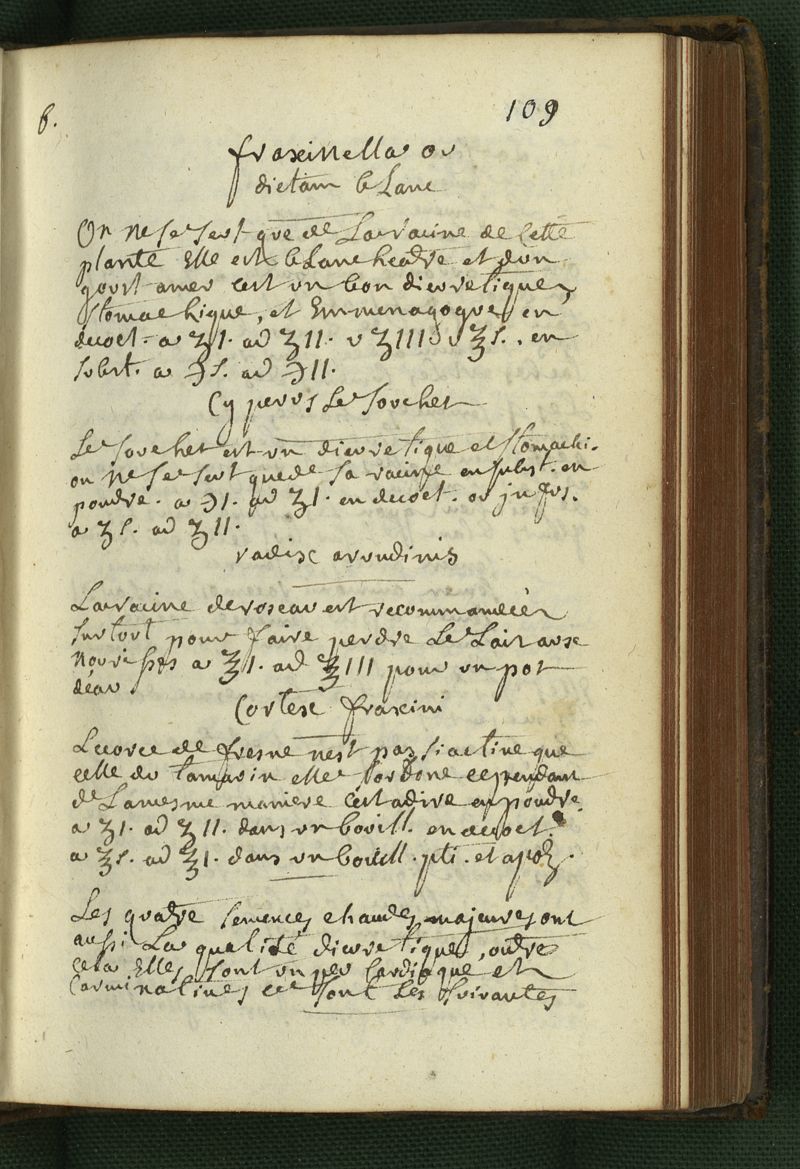 6.
109
fraxinella ou
dictam blanc
On ne se sert que de La racine de cette
plante Elle est blancheatre et d'un
goust amer c'est un bon dieuretique,
stomachique, et Emmenagogue, en
decoct. a ʒI. ad ʒII. v ʒIII. v ℥ſ. en
subst. a ℈ſ. ad ℈II.
Cyperus Le souchet
Le souchet est un dieuretique et stomachi.
on ne se sert que de sa racine en subst. en
poudre. a ℈I. ad ʒI. en decoct. ou jnfus.
a ℥ſ. ad ℥II.
radix arundinis
La racine de roseau est recommandée
surtout pour faire perdre Le Lait aux
Nourisses a ℥I. ad ℥III pour un pot
deau
Cortex fraxini
Lecorce de fresne nest pas si active que
celle du tamarin elle sordone cependant
de La mesme maniere cest a dire en poudre
a ʒI. ad ʒII. dans un bouill. en decoct.
a ℥ſ. ad ℥I. dans un bouill. pti. et apoz.
Les quatre semences chaudes majeures ont
aussi La qualité dieuretique, outre
cela Elles sont un peu Cardiaque et
Carminatives ce sont Les suivantes